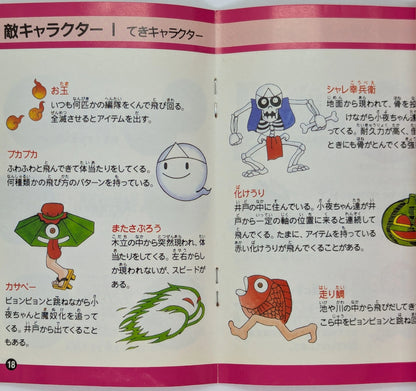 敵キャラクター | てきキャラクター
お玉
いつも何匹かの編隊をくんで飛び回る。
全滅させるとアイテムを出す。
プカプカ
ふわふわと飛んできて体当たりをしてくる。
何種類かの飛び方のパターンを持っている。
またさぶろう
木立の中から突然現われ、体
当たりをしてくる。左右からし
か現われないが、スピードが
ある。
カサベー
ピョンピョンと跳ねながら小
夜ちゃんと魔奴化を追って
くる。井戸から出てくること
もある。
18
シャレ幸兵衛
地面から現われて、骨を投
けながら小夜ちゃん達
ってくる。耐久力が高く、
ときにも骨がとんでくる
化けうり
井戸の中に住んでいる。小夜ちゃん達が井
戸から一定の軸の位置に来ると連続して
飛んでくる。たまに、アイテムを持っている
赤い化けうりが飛んでくることがある。
走り鯛
池や川の中から飛びだしてき
こら中をピョンピョンと跳ね